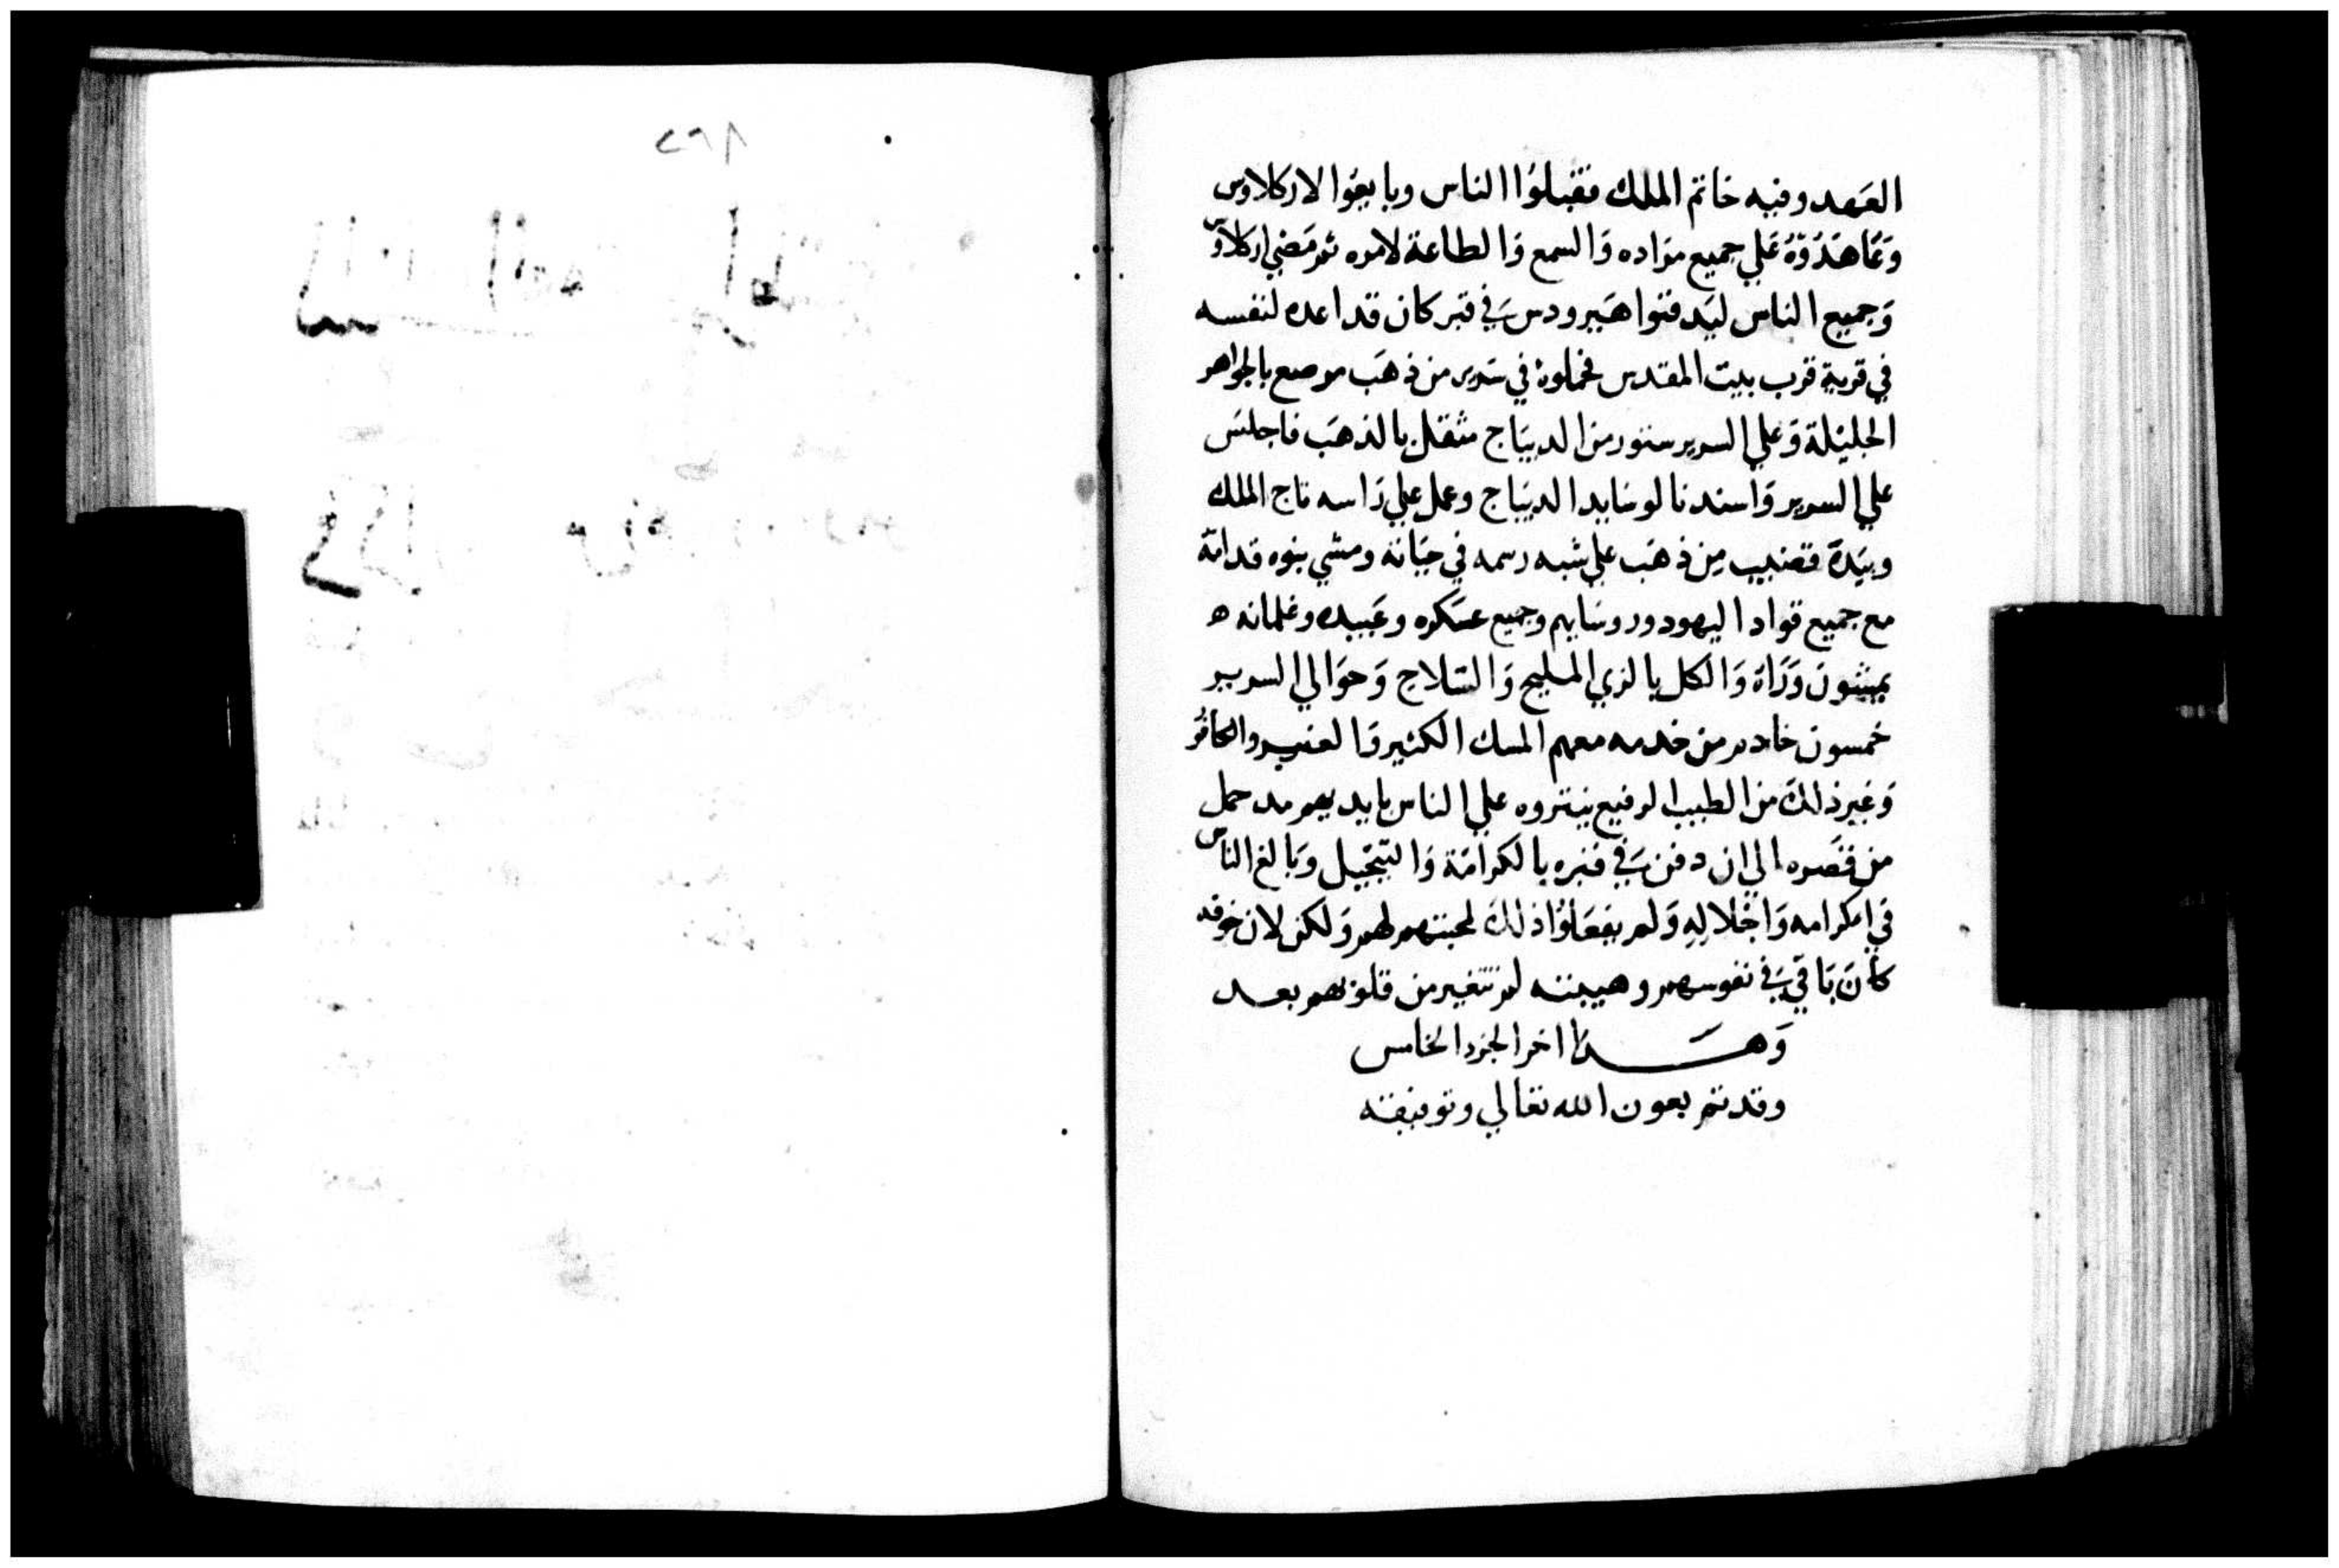 العَهد وفيه خاتم الملك فقبلوُا الناس وبايعوُا لاركلاوس
وَتعَاهَدُوّهُ عَلي جميع مرَاده وَالسمع وَالطاعة لامره ثم مَضي اركلاوس
وَجميع الناس ليَدفنوا هَيرودس في قبر كان قد اعده لنفسه
في قرية قرب بيت المقدس فحملوهُ في سَرير من ذهَب مرصع بالجواهر
الجليلة وَعلي السرير ستور من الديبَاج مثقل بالذهَب فاجلسَ
علي السرير وَاسند نالوسَايد الديبَاج وعمل علي رَاسه تاج الملك
وبيَدهَ قضيب مِن ذهَب علي شبه رسمه في حيَاته ومشي بنوه قدامَه
مع جميع قواد اليهود وروسَايهم وجميع عسَكره وعَبيده وغلمانه ه
يمشون وَرَاهَ وَالكل بالزي المليح وَالسّلاح وَحوَالي السرير
خمسون خادم من خدمه معهم المسك الكثير وَالعنبر والكافُور
وَغير ذلكَ من الطيب الرفيع ينتروه علي الناس بايديهم مد حمل
من قصَره الي ان دفن في قبره بالكرامَة وَالتبّجيل وَبالغ الناس
في اكرامه وَاجْلالِهِ وَلم يفعَلوُا ذلكَ لمحبتهم لهم وَلكن لان خوفه
كانَ بَاقي في نفوسهم وهيبته لم تتغير من قلوبهم بعد
وَهَـذا اخر الجزء الخامس
وقد تم بعون الله تعالي وتوفيقه